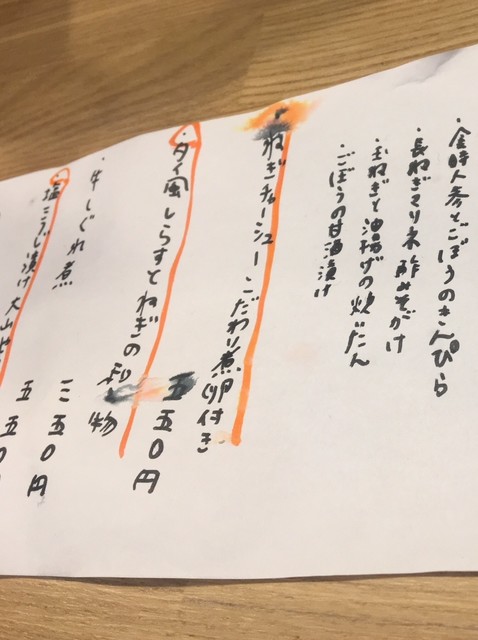 ・金時人参とごぼうのきんぴら
・長ねぎマリネ酢みそがけ
・玉ねぎと油揚げの炊いたん
・ごぼうの甘酒漬け
・ねぎチャーシュー こだわり煮卵付き
五五0円
・タイ風しらすとねぎの和物
三五0円
・牛しぐれ煮
五五0
・塩こうじ漬け 大山